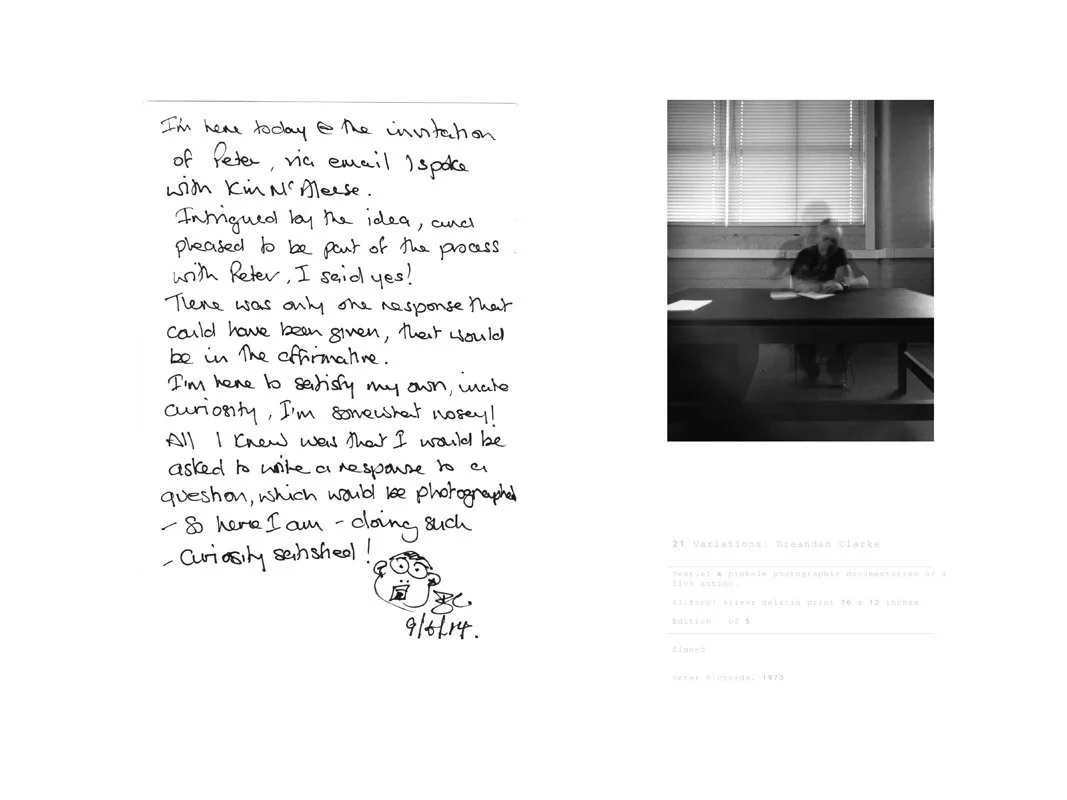 I'm here today @ the invitation
of Peter, via email I spoke
with Kim Mc Aleese.
Intrigued by the idea, and
pleased to be part of the process
with Peter, I said yes!
There was only one response that
could have been given, that would
be in the affirmative.
I'm here to satisfy my own, inate
curiosity, I'm somewhat nosey!
All I knew was that I would be
asked to write a response to a
question, which would be photographed
- So here I am - doing such
- Curiosity satisfied!
9/6/14.
21 Variations: Breandan Clarke
Textual & pinhole photographic documentation of a
live action.
(Ilford) silver gelatin print 16 x 12 inches
Edition of 5
Signed
Peter Richards, 1970